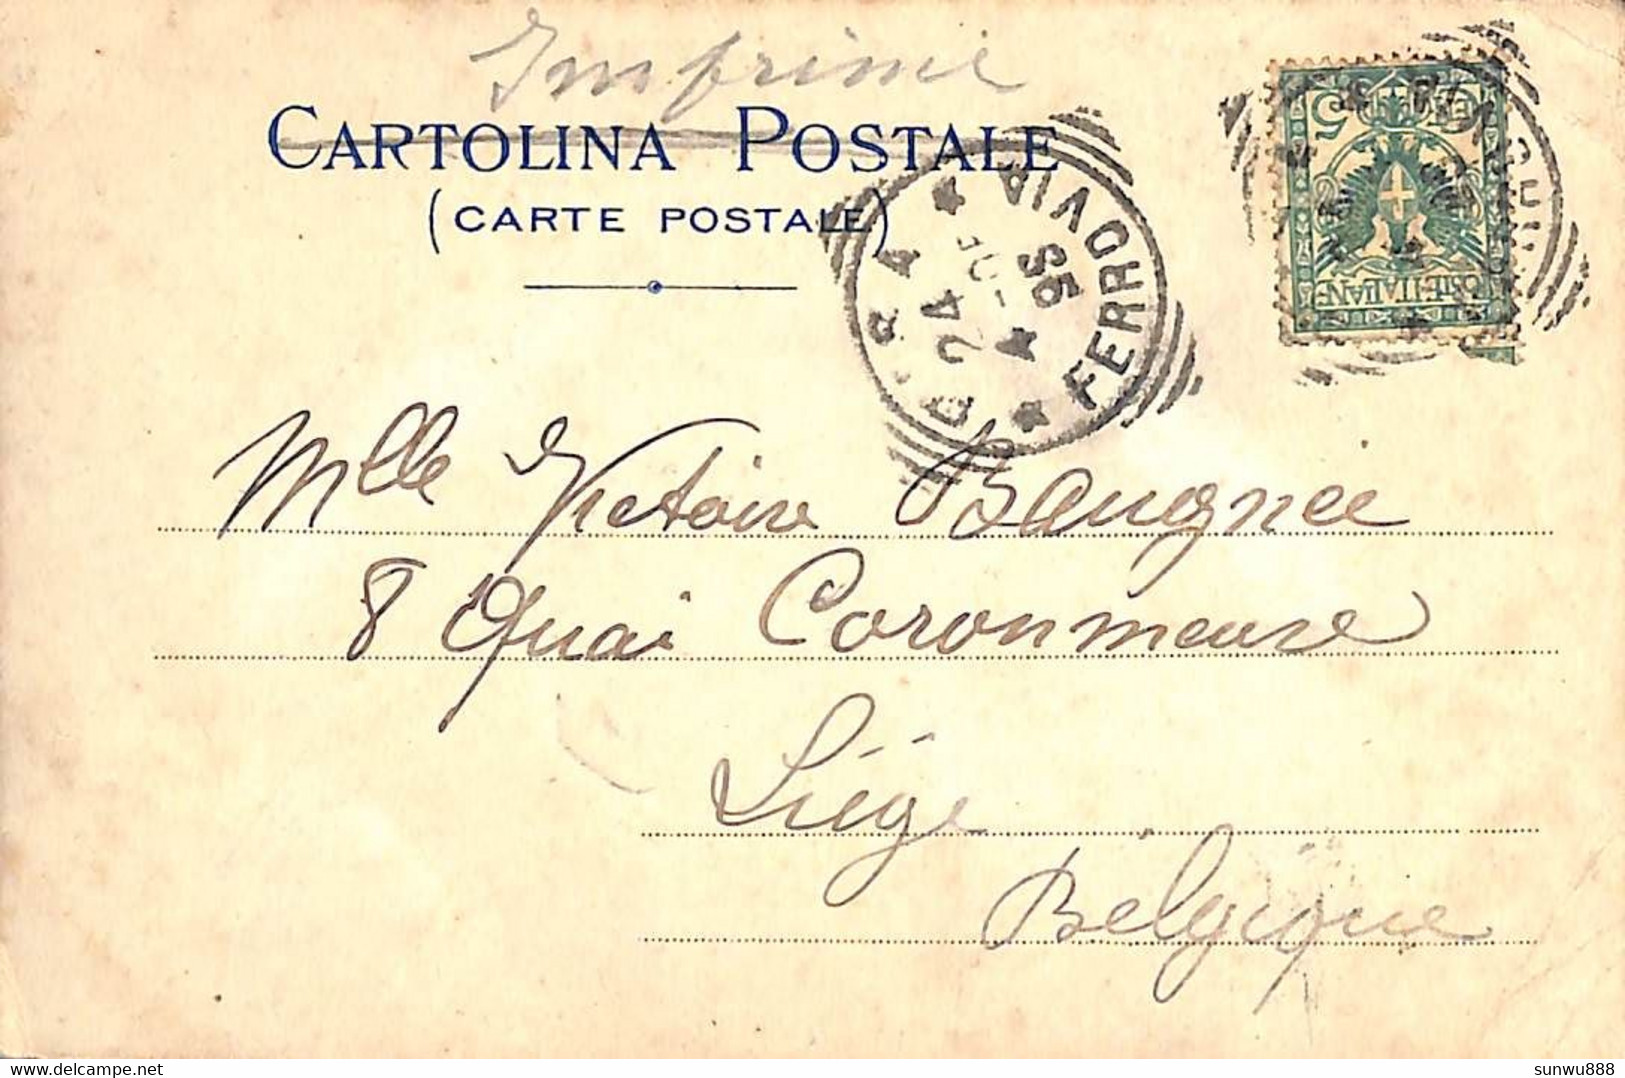 Imprimé
CARTOLINA POSTALE
(CARTE POSTALE)
FERROVIA
24
95
5
POSTE ITALIANE
Mlle Victoire Baugnée
8 Quai Coronmeuse
Liége
Belgique
delcampe.net
sunwu888